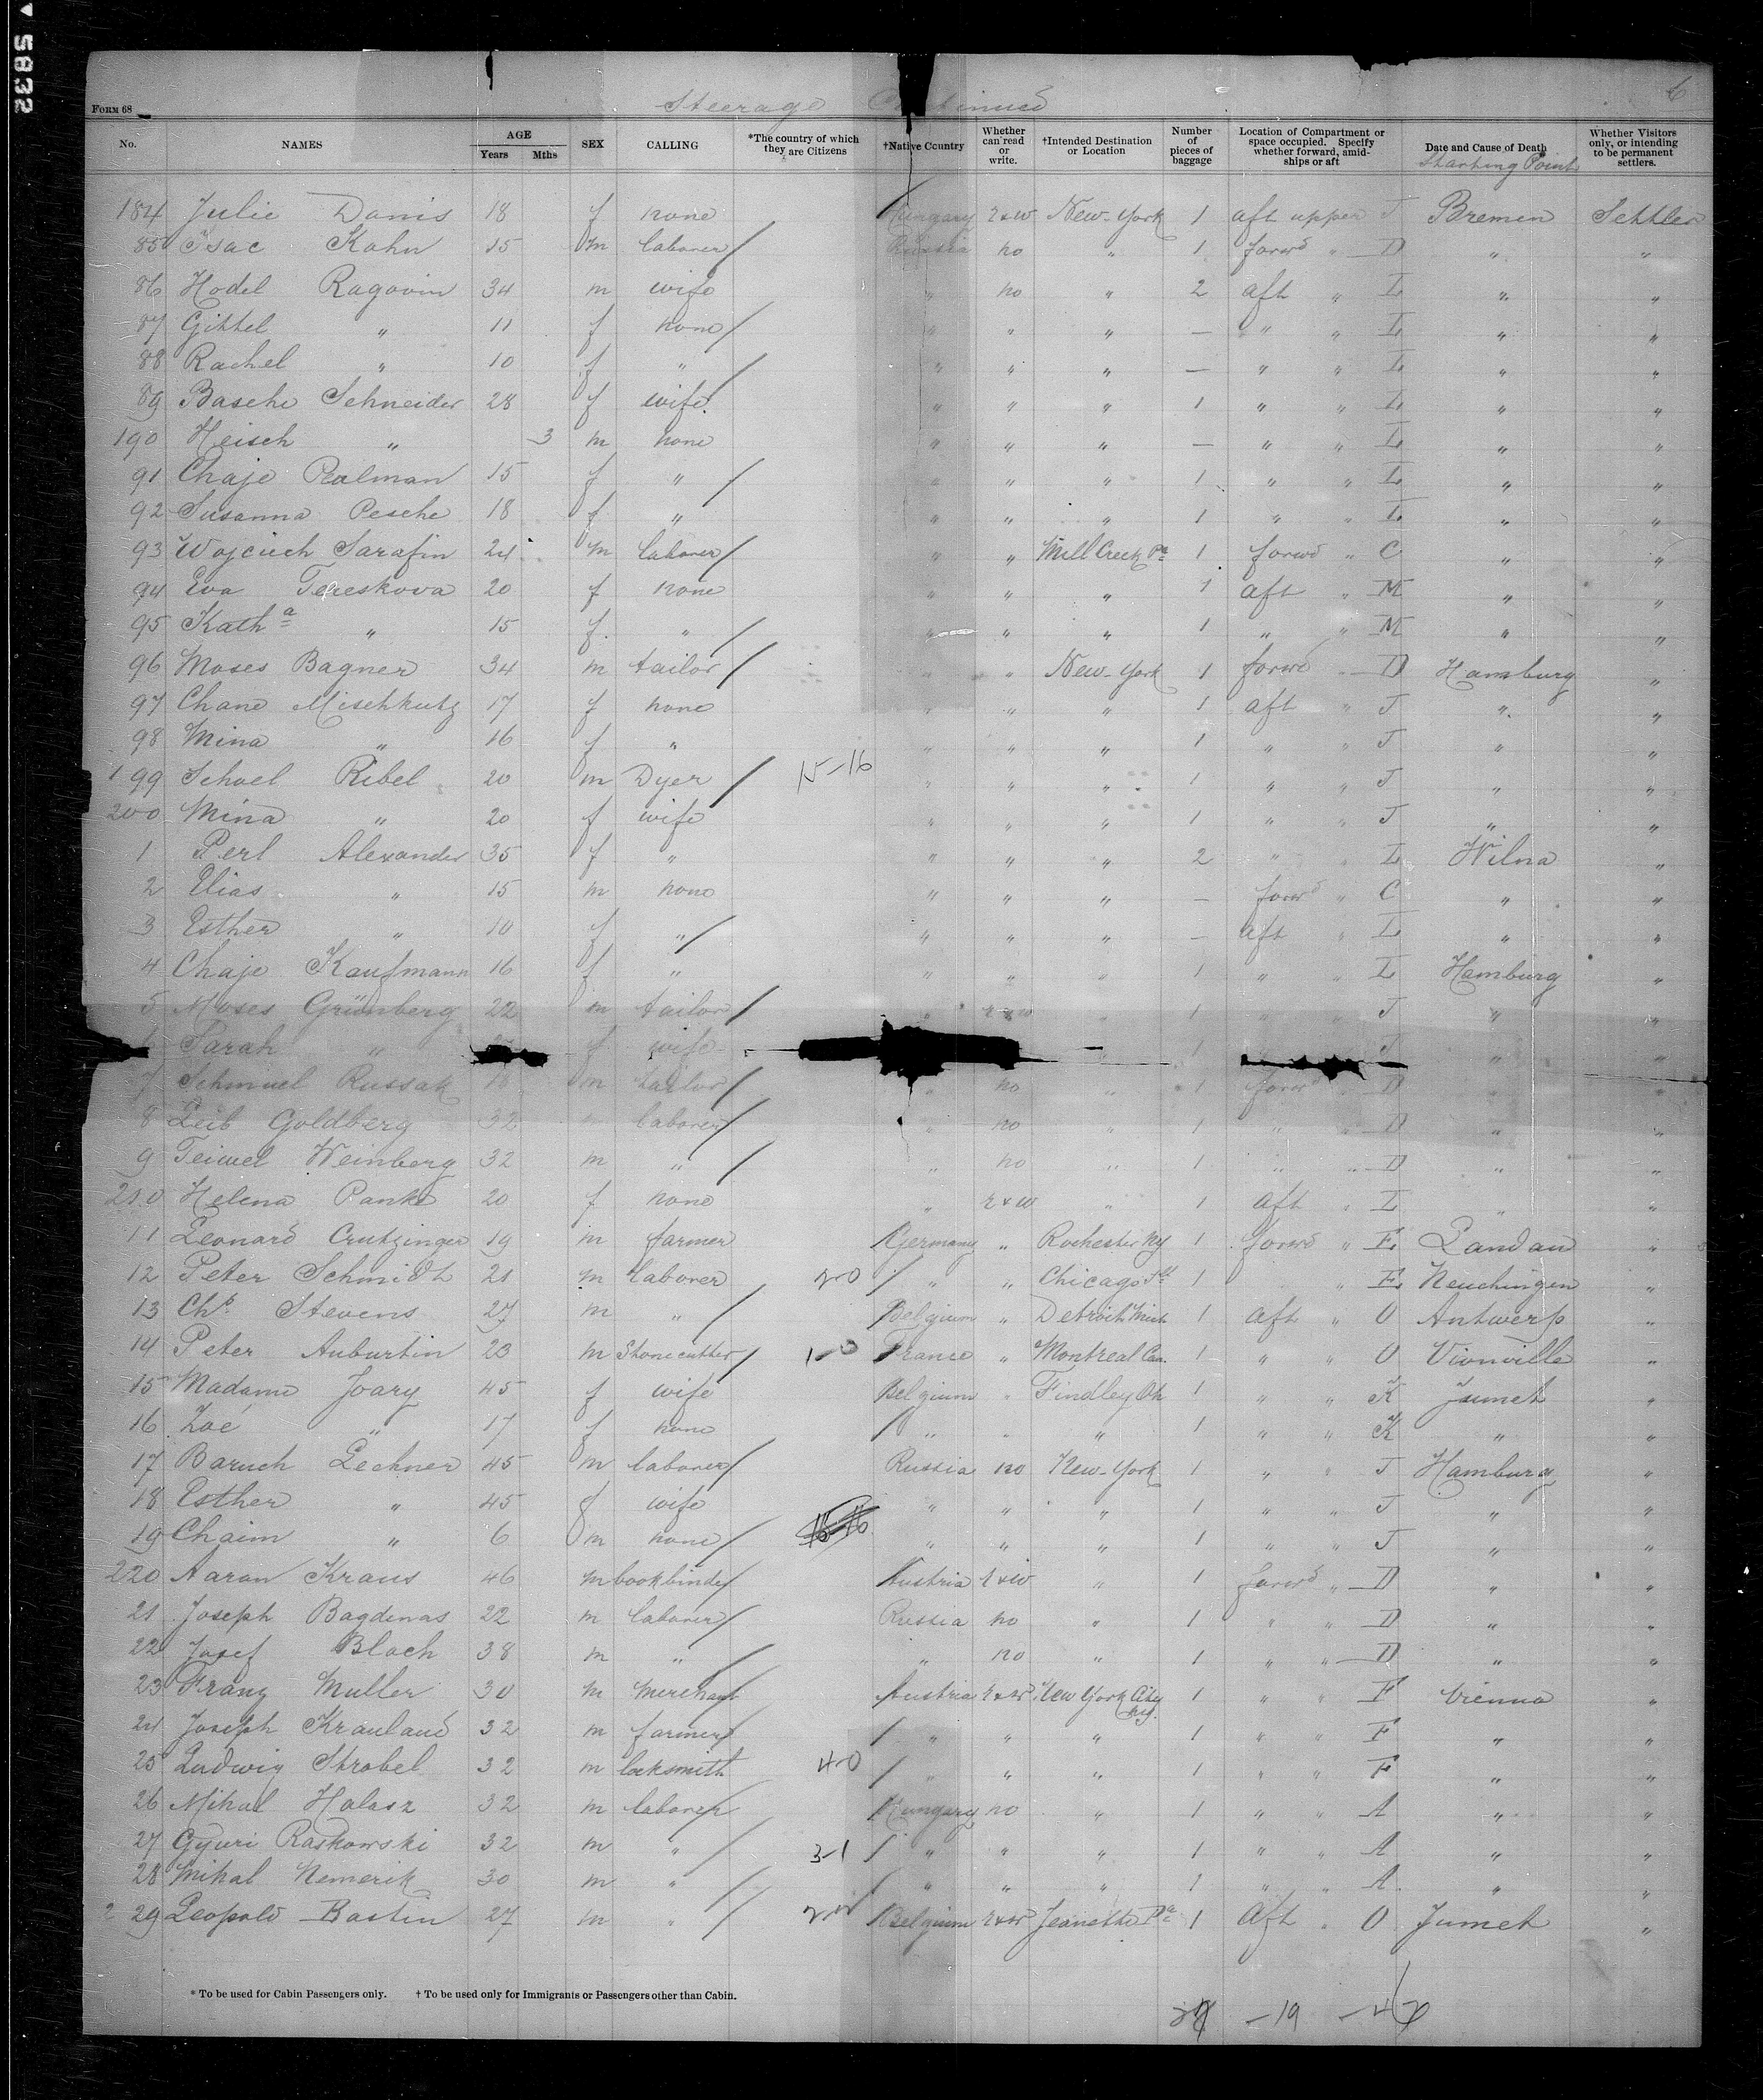 5832
6
FORM 68
Steerage Continued
No. NAMES AGE Years Mths SEX CALLING *The country of which they are Citizens †Native Country Whether can read or write. †Intended Destination or Location Number of pieces of baggage Location of Compartment or space occupied. Specify whether forward, amidships or aft Date and Cause of Death Whether Visitors only, or intending to be permanent settlers.
Starting Point
184 Julie Danis 18 f none Hungary r&w New-York 1 aft upper J Bremen Settler
85 Isac Kahn 15 m laborer / Russia no " 1 forwd " D " "
86 Hodel Ragovin 34 m wife " no " 2 aft " L " "
87 Gittel " 11 f none / " " " — " " L " "
88 Rachel " 10 f " / " " " — " " L " "
89 Basche Schneider 28 f wife " " " 1 " " L " "
190 Heisch " 3 m none " " " — " " L " "
91 Chaje Palman 15 f " / " " " 1 " " L " "
92 Susanna Pesche 18 f " " " " 1 " " L " "
93 Wojciech Sarafin 24 m laborer / " " Mill Creek Pa 1 forwd " C " "
94 Eva Tereskova 20 f none " " " 1 aft " M " "
95 Katha " 15 f. " / " " " 1 " " M " "
96 Moses Bagner 34 m tailor / " " New-York 1 forwd " D Hamburg "
97 Chane Mischkutz 17 f none " " " 1 aft " J " "
98 Mina " 16 f " " " " 1 " " J " "
199 Schoel Ribel 20 m Dyer / 15-16 " " " 1 " " J " "
200 Mina " 20 f wife " " " 1 " " J " "
1 Perl Alexander 35 f " " " " 2 " " L Wilna "
2 Elias " 15 m none " " " — forwd " C " "
3 Esther " 10 f " / " " " — aft " L " "
4 Chaje Kaufmann 16 f " " " " 1 " " L Hamburg "
5 Moses Grünberg 22 m tailor / " r&w " 1 " " J " "
Sarah " f wife " 1 J " "
7 Schmuel Russak 18 m tailor / " no " 1 forwd " D " "
8 Leib Goldberg 32 m laborer / " no " 1 " " D " "
9 Teiwel Weinberg 32 m " / " no " 1 " " D " "
210 Helena Panke 20 f none " r&w " 1 aft " L " "
11 Leonard Crutzinger 19 m farmer Germany " Rochester NY 1 forwd " E Landau "
12 Peter Schmidt 21 m laborer 2-0 / " " Chicago Ill 1 " E Neuchingen "
13 Chs Stevens 27 m " / Belgium " Detroit Mich 1 aft " O Antwerp "
14 Peter Auburtin 23 m Stonecutter / 1-0 France " Montreal Can. 1 " " O Vionville "
15 Madame Joary 45 f wife Belgium " Findley Oh 1 " " K Jumet "
16 Zoé " 17 f none / " " " 1 " " K " "
17 Baruch Lechner 45 m laborer / Russia no New-York 1 " " J Hamburg "
18 Esther " 45 f wife " " " 1 " " J " "
19 Chaim " 6 m none / 15-16 " " " 1 " " J " "
220 Aaron Kraus 46 m bookbinder Austria r&w " 1 forwd " D " "
21 Joseph Bagdenas 22 m laborer / Russia no " 1 " " D " "
22 Josef Bloch 38 m " / " no " 1 " " D " "
23 Franz Muller 30 m merchant Austria r&w New York City Ny. 1 " " F Vienna "
24 Joseph Krauland 32 m farmer / / " " " 1 " " F " "
25 Ludwig Strobel 32 m locksmith 4-0 / " " " 1 " " F " "
26 Mihal Halasz 32 m laborer Hungary no " 1 " " A " "
27 Gyuri Raskowski 32 m " / 3-1 / " " " 1 " " A " "
28 Mihal Nemerik 30 m " / / " " " 1 " " A " "
229 Leopold Bastin 27 m " / Belgium r&w Jeanette Pa 1 Aft " O Jumet "
* To be used for Cabin Passengers only. † To be used only for Immigrants or Passengers other than Cabin.
27 -19 -46